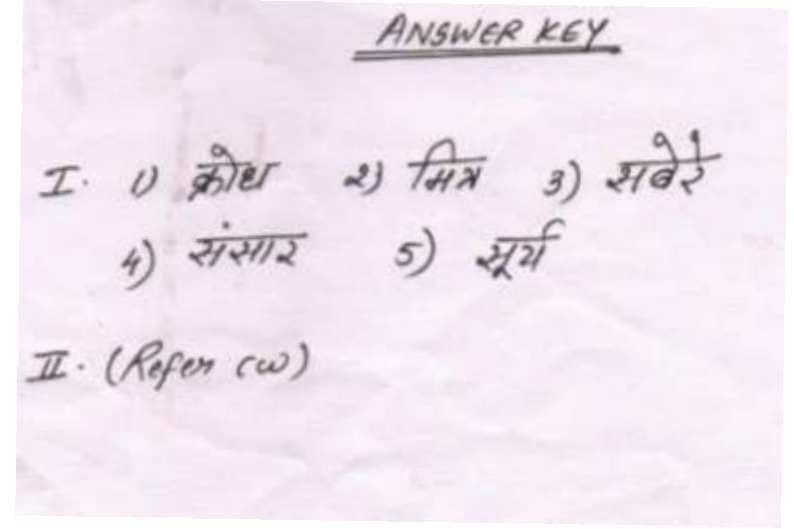 ANSWER KEY
I. 1) क्रोध 2) मित्र 3) सवेरे
4) संसार 5) सूर्य
II. (Refer cw)